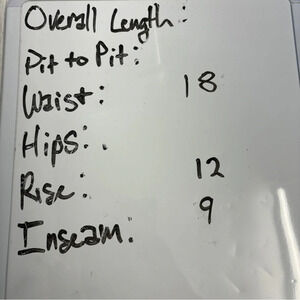 Overall Length:
Pit to Pit:
Waist: 18
Hips:
Rise: 12
Inseam: 9